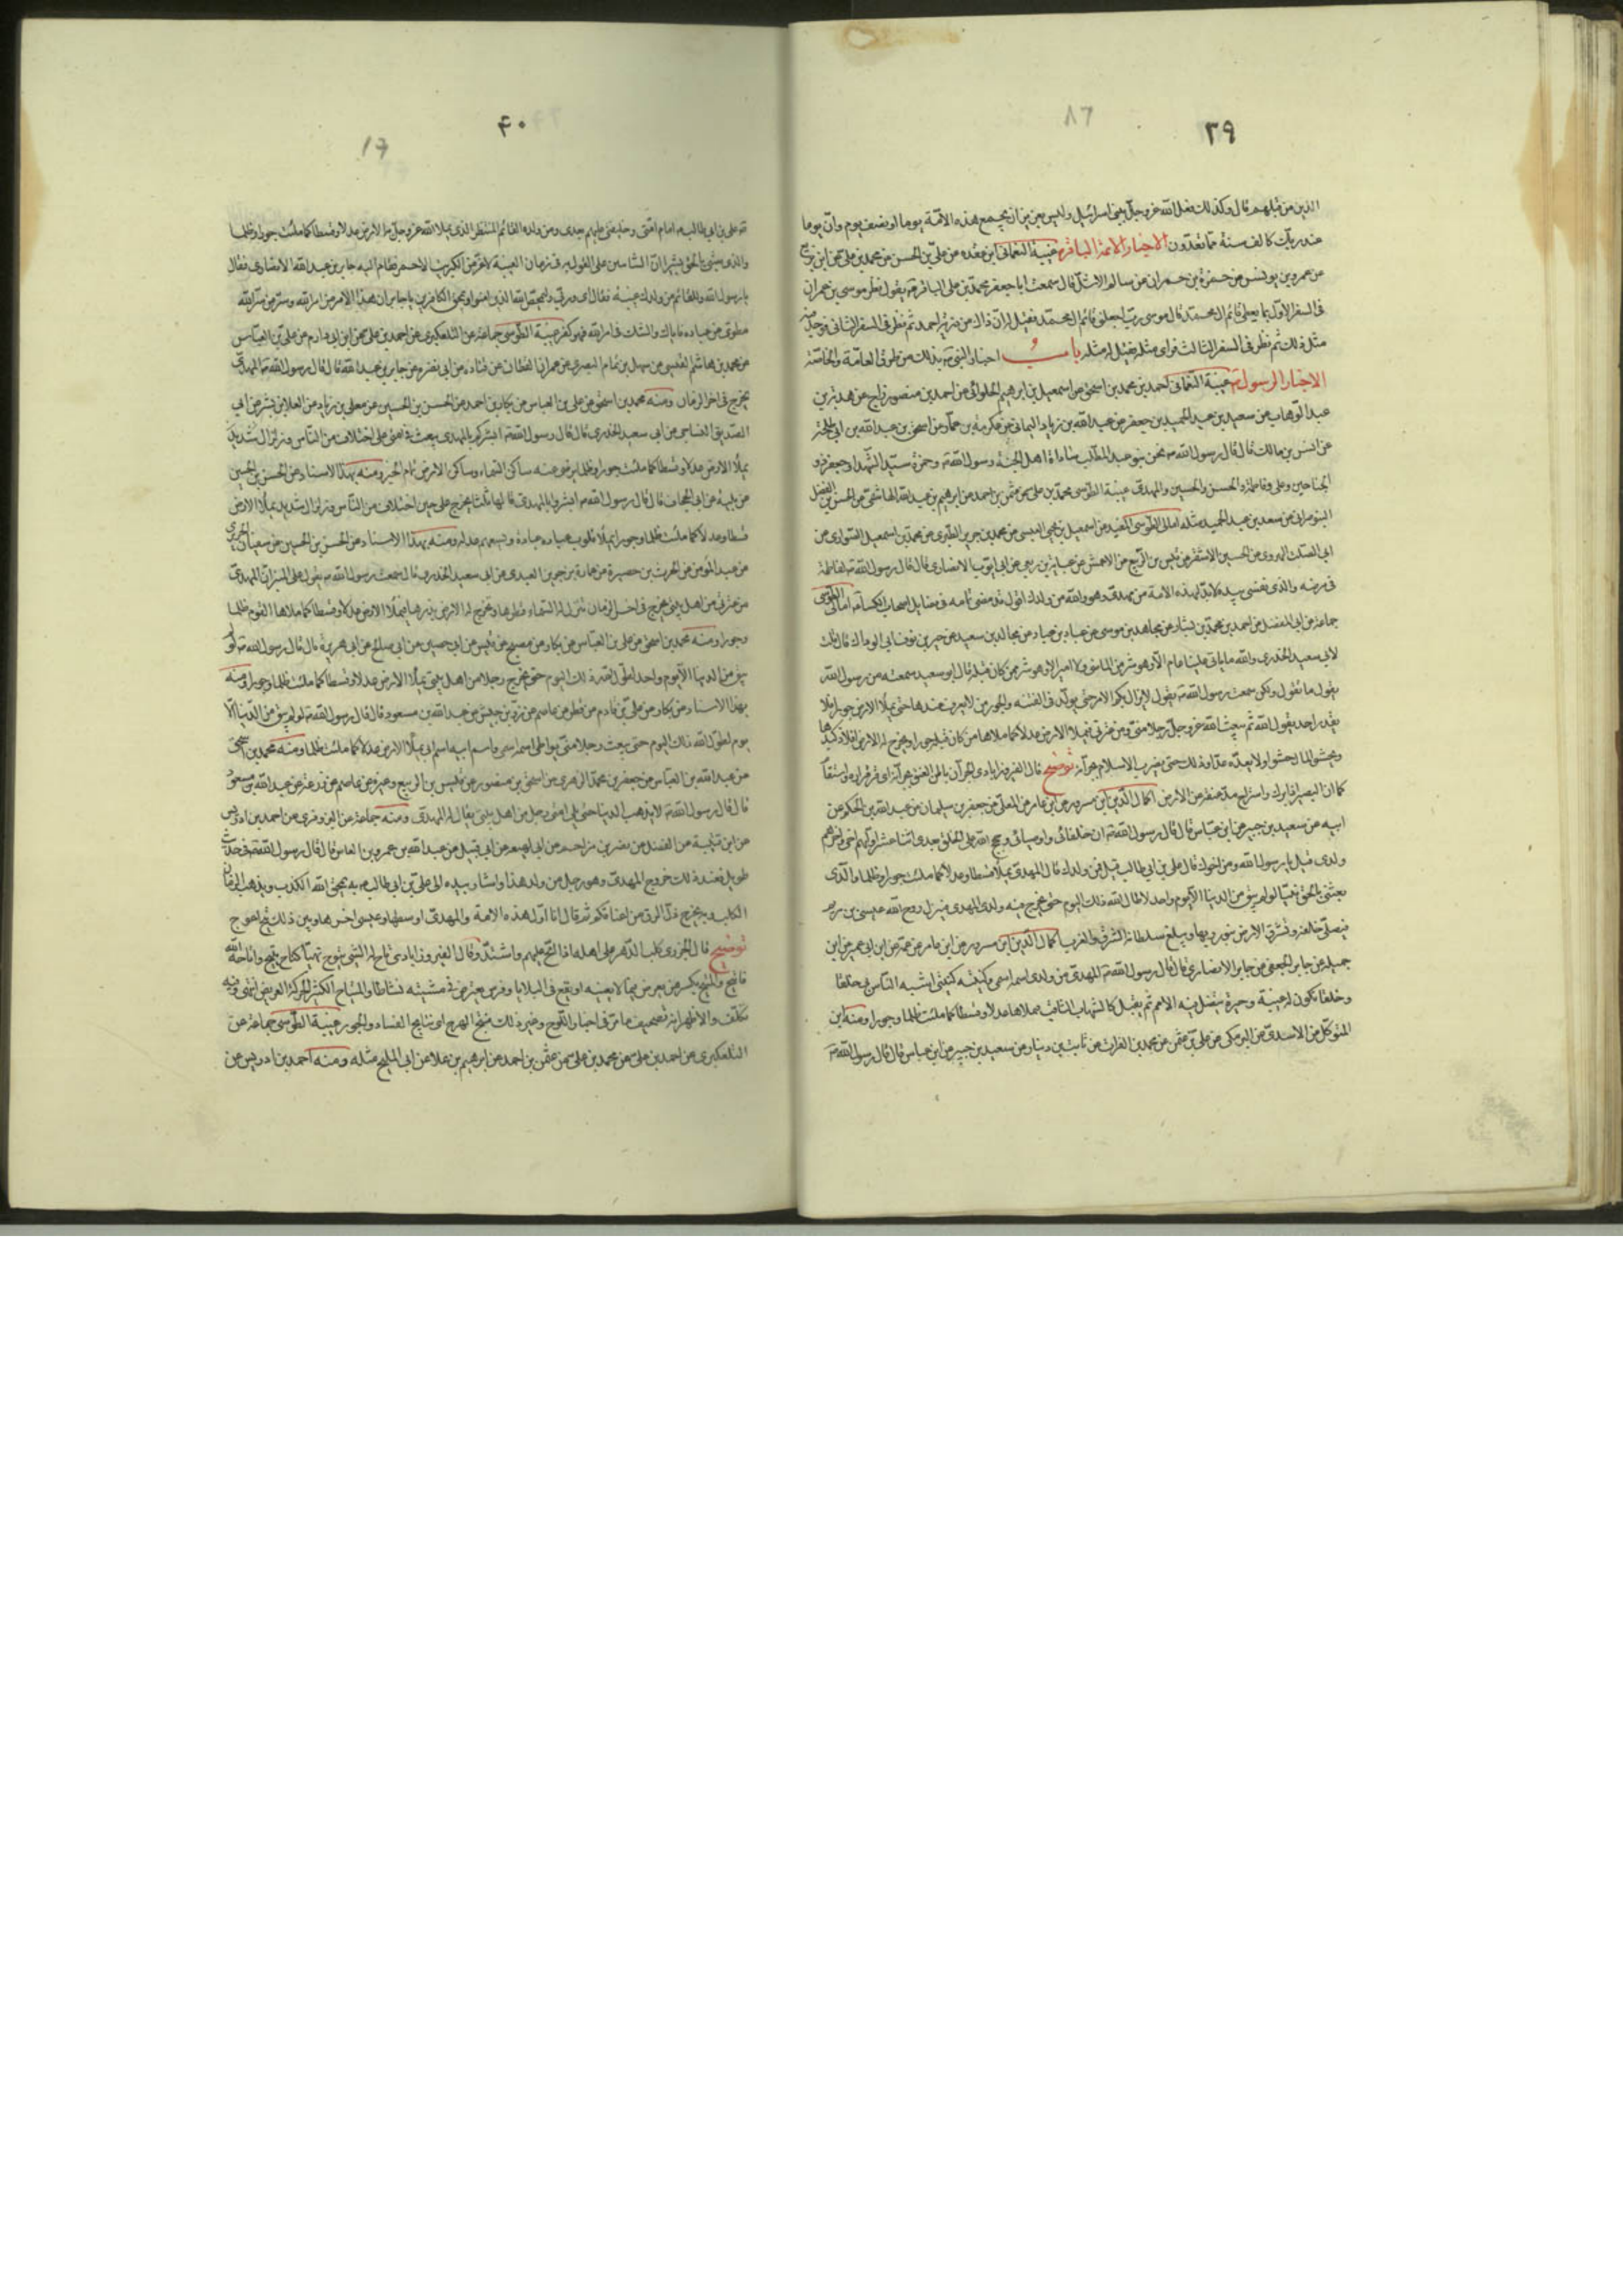 ٣٩
الذين من قبلهم قال وكذلك يفعل الله عز وجل ببني اسرائيل وليس بعزيز ان يجمع هذه الامة يوما او نصف يوم وان يوما
عند ربك كالف سنة مما تعدون الاخبار الائمة الباقر غيبة النعماني ابن عقده من علي بن الحسن عن محمد بن علي عن ابن بزيع
عن عمرو بن يونس عن حمزة بن حمران عن سالم الاشل قال سمعت ابا جعفر محمد بن علي الباقر يقول نظر موسى بن عمران
في السفر الاول بما يعطى قائم ال محمد قال موسى رب اجعلني قائم ال محمد فقيل له ان ذاك من ذرية احمد ثم نظر في السفر الثاني فوجد فيه
مثل ذلك ثم نظر في السفر الثالث فراى مثله فقيل له مثله باب اخبار النبي بذلك من طرق العامة والخاصة
الاخبار الرسول غيبة النعماني احمد بن محمد بن اسحق عن اسمعيل بن ابرهيم الحلواني عن احمد بن منصور زاج عن هدبة بن
عبد الوهاب عن سعيد بن عبد الحميد بن جعفر عن عبد الله بن زياد اليماني عن عكرمة بن عمار عن اسحق بن عبد الله بن ابي طلحة
عن انس بن مالك قال قال رسول الله نحن بنو عبد المطلب سادة اهل الجنة رسول الله وحمزة سيد الشهدا وجعفر ذو
الجناحين وعلى وفاطمة والحسن والحسين والمهدى غيبة الطوسى محمد بن علي عن عثمن بن احمد عن ابرهيم بن عبد الله الهاشمي عن الحسن بن الفضل
عن سعد بن عبد الحميد مثله امالى الطوسى المفيد عن اسمعيل بن يحيى العبسى عن محمد بن جرير الطبري عن محمد بن اسمعيل الصواري عن
ابي الصلت الهروى عن الحسين الاشقر عن قيس بن الربيع عن الاعمش عن عباية بن ربعي عن ابي ايوب الانصاري قال قال رسول الله لفاطمة
في مرضه والذي نفسى بيده لابد لهذه الامة من مهدى وهو والله من ولدك اقول قد مضى تمامه في فضايل اصحاب الكساء امالى الطوسى
جماعة عن ابي المفضل عن احمد بن محمد بن بشار عن مجاهد بن موسى عن عباد بن عباد عن مجالد بن سعيد عن جبر بن نوف ابي الوداك قال قلت
لابى سعيد الخدرى والله ما ياتى علينا عام الا وهو شر من الماضى ولا امير الا وهو شر ممن كان قبله فقال ابو سعيد سمعته من رسول الله
يقول ما تقول ولكن سمعت رسول الله يقول لا يزال بكم الامر حتى يولد في الفتنة والجور من لا يعرف عندها حتى يملأ الارض جورا فلا
يقدر احد يقول الله ثم يبعث الله عز وجل رجلا مني ومن عترتي فيملأ الارض عدلا كما ملأها من كان قبله جورا ويخرج له الارض افلاذ كبدها
ويحثو المال حثوا ولا يعده عدا وذلك حتى يضرب الاسلام بجرانه توضيح قال الفيروزابادى الجران
اكمال الدين ابن مسرور عن ابن عامر عن المعلى عن جعفر بن سليمان عن عبد الله بن الحكم عن
ابيه عن سعيد بن جبير عن ابن عباس قال قال رسول الله ان خلفائى واوصيائى وحجج الله على الخلق بعدى اثنا عشر اولهم اخى واخرهم
ولدى قيل يا رسول الله ومن اخوك قال علي بن ابي طالب قيل فمن ولدك قال المهدى يملأ قسطا وعدلا كما ملئت جورا وظلما والذى
بعثنى بالحق نبيا لو لم يبق من الدنيا الا يوم واحد لاطال الله ذلك اليوم حتى يخرج فيه ولدى المهدى فينزل روح الله عيسى بن مريم
فيصلى خلفه وتشرق الارض بنور ربها ويبلغ سلطانه المشرق والمغرب اكمال الدين ابن مسرور عن ابن عامر عن عمه عن ابن ابي عمير عن ابي
جميلة عن جابر الجعفى عن جابر الانصاري قال قال رسول الله المهدى من ولدى اسمه اسمى وكنيته كنيتى اشبه الناس بى خلقا
وخلقا تكون له غيبة وحيرة تضل فيه الامم ثم يقبل كالشهاب الثاقب فيملاها عدلا وقسطا كما ملئت ظلما وجورا ومنه ابن
المتوكل عن الاسدى عن البرمكى عن علي بن عثمن عن محمد بن الفرات عن ثابت بن دينار عن سعيد بن جبير عن ابن عباس قال قال رسول الله
۴٠
علي بن ابي طالب امام امتى وخليفتى عليهم بعدى ومن ولده القائم المنتظر الذى يملأ الله عز وجل به الارض عدلا وقسطا كما ملئت جورا وظلما
والذى بعثنى بالحق بشيرا ان الثابتين على القول به في زمان الغيبة لاعز من الكبريت الاحمر فقام اليه جابر بن عبد الله الانصارى فقال
يا رسول الله وللقائم من ولدك غيبة فقال اى وربي وليمحص الله الذين امنوا ويمحق الكافرين يا جابر ان هذا الامر من امر الله وسر من سر الله
مطوى من عباده فاياك والشك في امر الله فهو كفر غيبة الطوسى جماعة عن التلعكبرى عن احمد بن علي عن ابن ابي دارم عن علي بن العباس
عن محمد بن هاشم القيسى عن سهل بن تمام البصرى عن عمران القطان عن قتادة عن ابي نضرة عن جابر بن عبد الله قال قال رسول الله المهدى
يخرج في اخر الزمان ومنه محمد بن اسحق عن علي بن العباس عن بكار بن احمد عن الحسن بن الحسين عن معلى بن زياد عن العلا بن بشير عن ابي
الصديق الناجى عن ابي سعيد الخدرى قال قال رسول الله ابشركم بالمهدى يبعث في امتى على اختلاف من الناس وزلزال شديد
يملأ الارض عدلا وقسطا كما ملئت جورا وظلما يرضى عنه ساكن السماء وساكن الارض تمام الخبر ومنه بهذا الاسناد عن الحسن بن الحسين
عن تليد عن ابي الجحاف قال قال رسول الله ابشروا بالمهدى قالها ثلثا يخرج على حين اختلاف من الناس وزلزال شديد يملأ الارض
قسطا وعدلا كما ملئت ظلما وجورا يملأ قلوب عباده عبادة ويسعهم عدله ومنه بهذا الاسناد عن الحسن بن الحسين عن سفيان الجريرى
عن عبد المؤمن عن الحرث بن حصيرة عن عمارة بن جوين العبدى عن ابي سعيد الخدرى قال سمعت رسول الله يقول على المنبر ان المهدى
من عترتى من اهل بيتى يخرج في اخر الزمان تنزل له السماء قطرها وتخرج له الارض بذرها فيملأ الارض عدلا وقسطا كما ملاها القوم ظلما
وجورا ومنه محمد بن اسحق عن علي بن العباس عن بكار عن مصبح عن قيس عن ابي حصين عن ابي صالح عن ابي هريرة قال قال رسول الله لو لم
يبق من الدنيا الا يوم واحد لطول الله ذلك اليوم حتى يخرج رجلا من اهل بيتى يملأ الارض عدلا وقسطا كما ملئت ظلما وجورا ومنه
بهذا الاسناد عن بكار عن علي بن قادم عن فطر عن عاصم عن زر بن حبيش عن عبد الله بن مسعود قال قال رسول الله لو لم يبق من الدنيا الا
يوم لطول الله ذلك اليوم حتى يبعث رجلا مني يواطى اسمه اسمى واسم ابيه اسم ابى يملأ الارض عدلا كما ملئت ظلما ومنه محمد بن اسحق
عن عبد الله بن العباس عن جعفر بن محمد الزهرى عن اسحق بن منصور عن قيس بن الربيع وغيره عن عاصم عن زر عن عبد الله بن مسعود
قال قال رسول الله لا يذهب الدنيا حتى يلى امتى رجل من اهل بيتى يقال له المهدى ومنه جماعة عن البزوفرى عن احمد بن ادريس
عن ابن قتيبة عن الفضل عن نصر بن مزاحم عن ابي لهيعة عن ابي قبيل عن عبد الله بن عمرو بن العاص قال قال رسول الله في حديث
طويل فعند ذلك خروج المهدى وهو رجل من ولد هذا واشار بيده الى علي بن ابي طالب به يمحق الله الكذب ويذهب الزمان
الكلب وبه يخرج ذل الرق من اعناقكم ثم قال انا اول هذه الامة والمهدى اوسطها وعيسى اخرها وبين ذلك تيح اعوج
توضيح قال الجزرى كلب الدهر على اهله اذا الح عليهم واشتد وقال الفيروزابادى تاح له الشى يتوح تهيأ كتاح يتيح واتاحه الله
فاتيح والمتيح كمنبر من يعرض فيما لا يعنيه او يقع في البلايا وفرس يعترض في مشيته نشاطا والمتياح الكثير الحركة العريض انتهى وفيه
تكلف والاظهر انه تصحيف ما مر في اخبار اللوح وغير ذلك نتج الهرج اى نتايج الفساد والجور غيبة الطوسى جماعة عن
التلعكبرى عن احمد بن علي عن محمد بن علي عن عثمن بن احمد عن ابرهيم بن علا عن ابي المليح مثله ومنه احمد بن ادريس عن